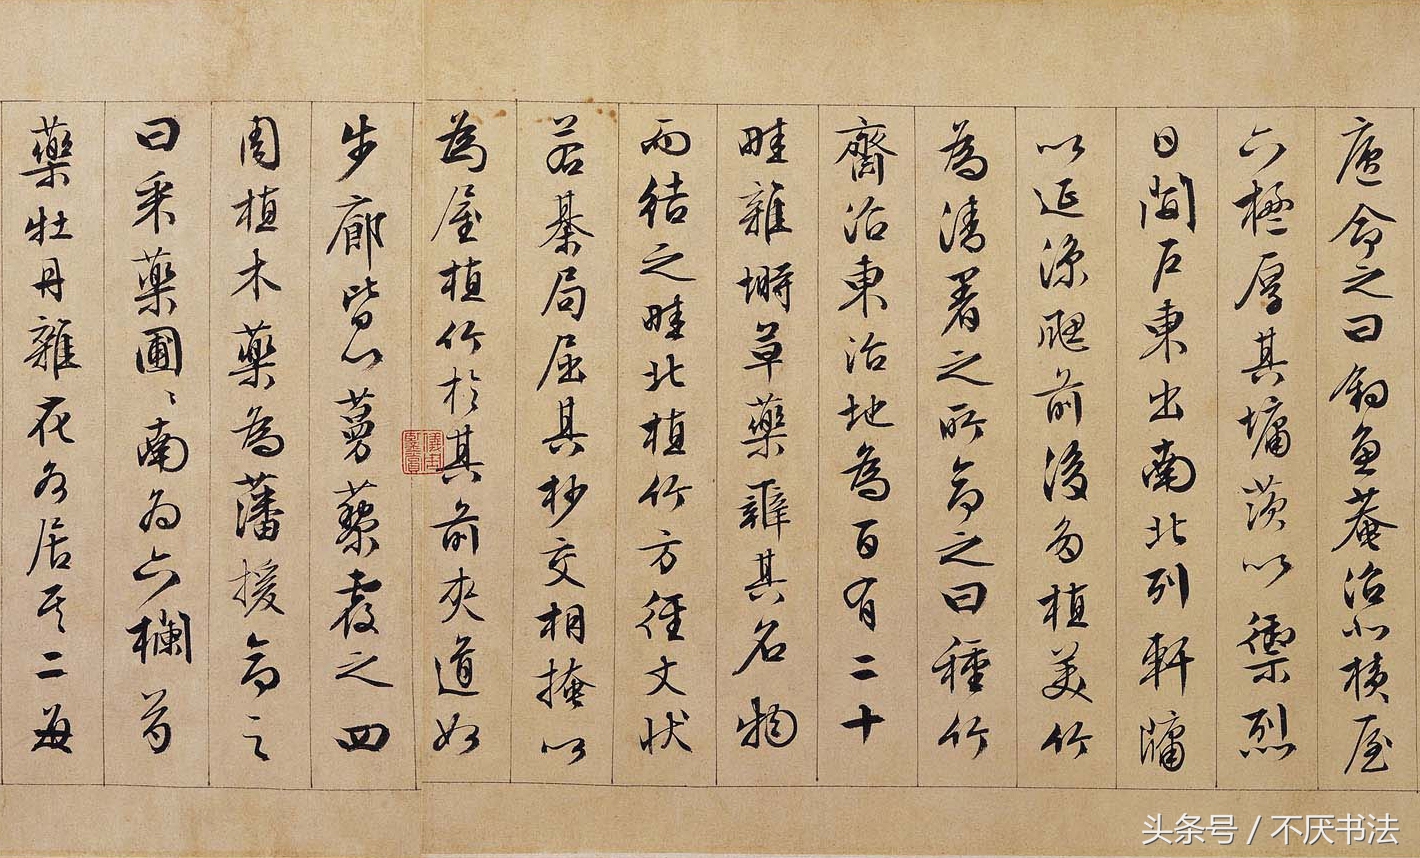 廬命之曰釣魚菴沼北橫屋
六楹厚其墉茨以禦烈
日開戶東出南北列軒牖
以延涼颸前後多植美竹
為清暑之所命之曰種竹
齋沼東治地為百有二十
畦雜蒔草藥辨其名物
而揭之畦北植竹方徑丈狀
若棊局屈其杪交相掩以
為屋植竹於其前夾道如
步廊皆以蔓藥覆之四
周植木藥為藩援命之
曰采藥圃圃南為六欄芍
藥牡丹雜花各居其二每
頭条号 / 不厌书法